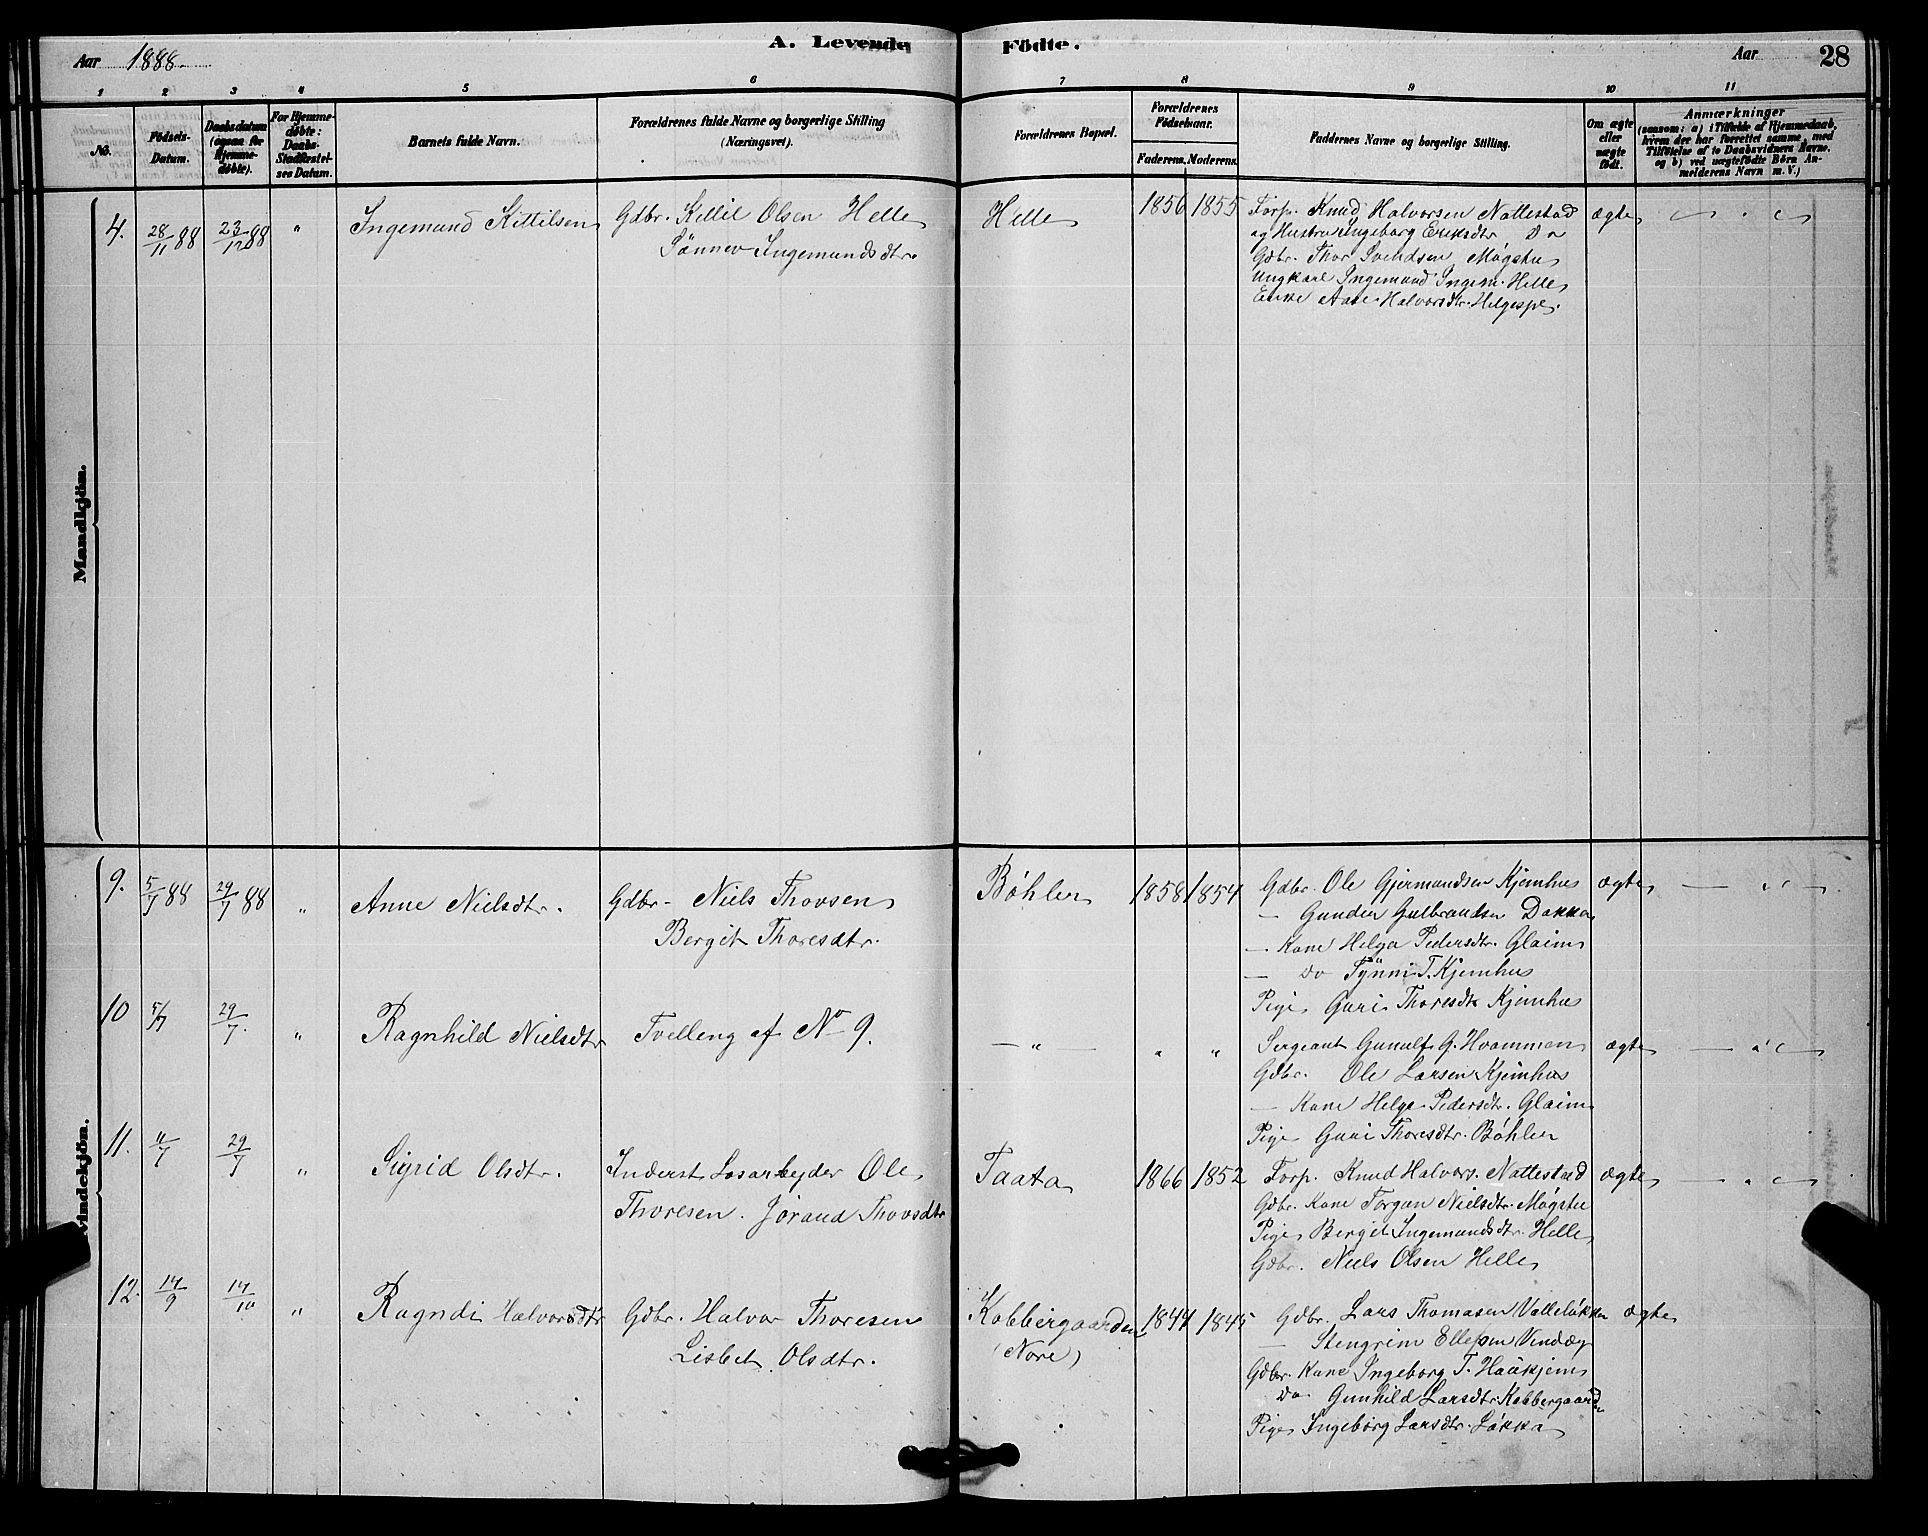 A. Levende Födte.
Aar 1888. Aar 28
1 2 3 4 5 6 7 8 9 10 11
No.
Födsels-
Datum.
Daabsdatum
(ogsaa for
Hjemme-
døbte).
For Hjemme-
døbte:
Daabs-
Stadfæstel-
ses Datum.
Barnets fulde Navn.
Forældrenes fulde Navne og borgerlige Stilling
(Næringsvei).
Forældrenes Bopæl.
Forældrenes
Födselsaar.
Faderens. Moderens.
Faddernes Navne og borgerlige Stilling.
Om ægte
eller
uægte
født.
Anmærkninger
(saasom: a) i Tilfælde af Hjemmedaab,
hvem der har forrettet samme, med
Tilföielse af to Daabsvidners Navne,
og b) ved uægtefødte Börn An-
melderens Navn m. V.)
Mandkjön.
4. 28/11 88 23/12 88 " Ingemund Kittilsen Gdbr. Kittil Olsen Helle Helle 1856 1855 Forp. Knud Halvorsen Nattestad ægte
Sönnev Ingemundsdtr. og Hustru Ingeborg Eriksdtr Do
Gdbr. Thor Svendsen Møgstu
Ungkarl Ingemund Ingem. Helle
Enke Aase Halvorsdtr. Helgespl.
Kvindekjön.
9. 5/7 88 29/7 88 " Anne Nielsdtr. Gdbr. Niels Thovsen Bøhler 1858 1854 Gdbr. Ole Gjermundsen Kjemhus ægte — " —
Bergit Thoresdtr. — Gunder Gulbrandsen Dokka
— Kone Helga Pedersdtr. Glaim
— Do Synni T. Kjemhus
Pige Guri Thoresdtr Kjemhus
10 5/7 29/7. " Ragnhild Nielsdtr Tvilling af No 9. — " — " " Sergeant Gunulf G. Hvammen ægte — " —
Gdbr. Ole Larsen Kjemhus
— Kone Helge Pedersdtr. Glaim
Pige Guri Thoresdtr. Bøhler
11. 11/7 29/7 " Sigrid Olsdtr. Inderst Løsarbejder Ole Taata 1866 1852 Forp. Knud Halvors. Nattestad ægte — " —
Thoresen. Jørand Thovsdtr Gdbr. Kone Torgun Nielsdtr. Møgstu
Pige Bergit Ingemundsdtr. Helle
Gdbr. Niels Olsen Helle
12. 14/9 14/10 " Ragndi Halvorsdtr Gdbr. Halvor Thoresen Kobbergaarden 1844 1845 Gdbr. Lars Thomasen Valleløkken ægte
Lisbet Olsdtr. (Nore) — Stengrim Ellefsen Vindeg
Gdbr. Kone Ingeborg T. Haakjem
Do Gunhild Larsdtr Kobbergaarden
Pige Ingeborg Larsdtr. Løkka